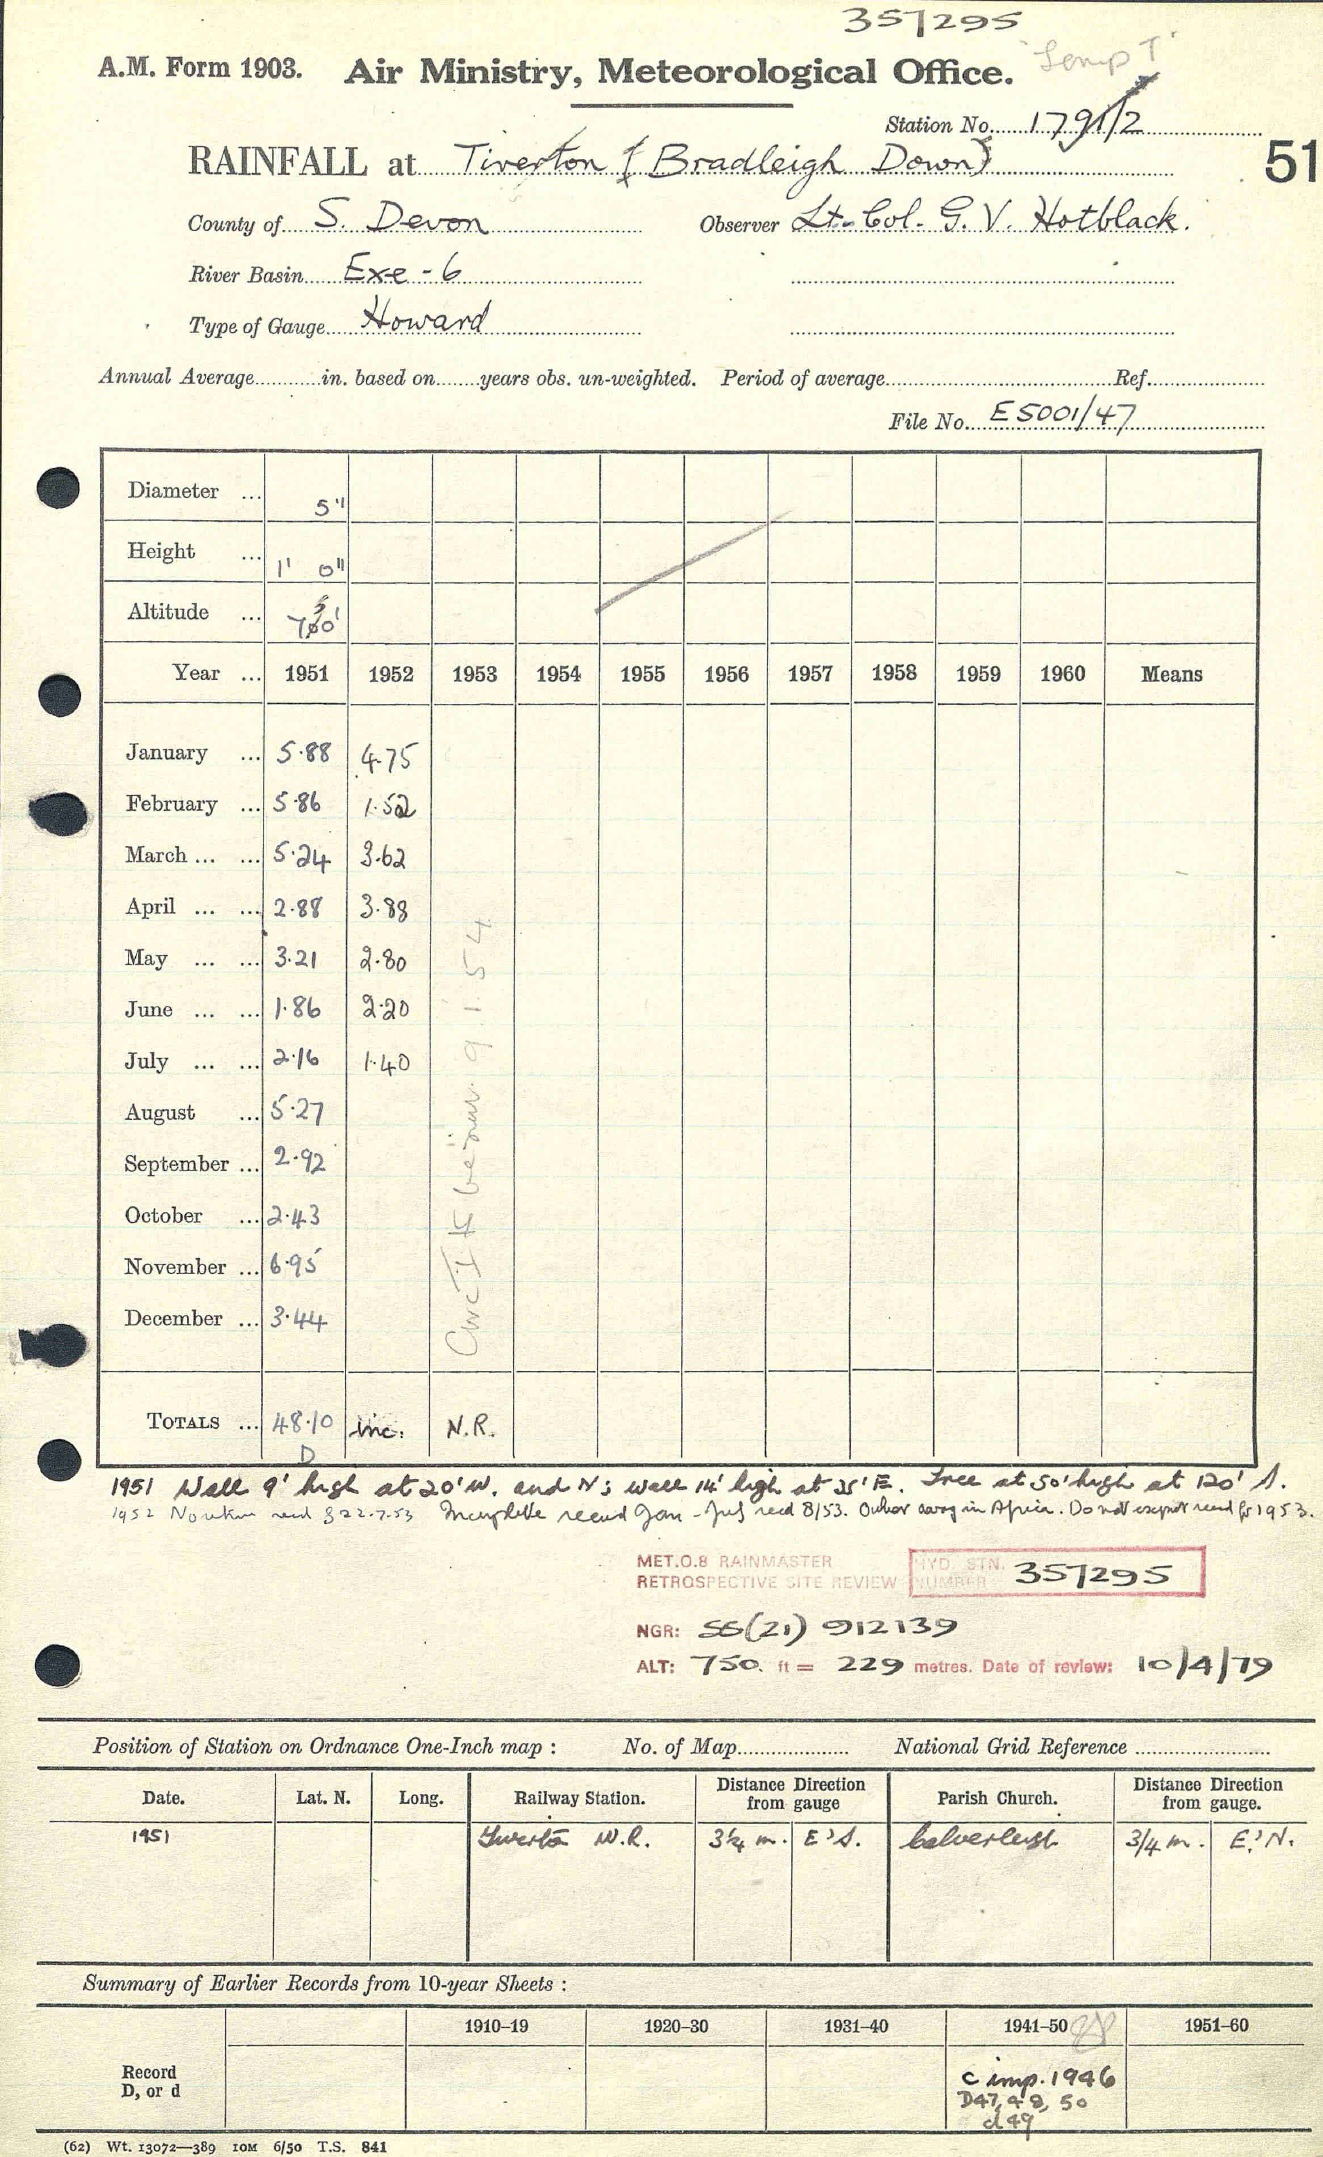 357295
A.M. Form 1903. Air Ministry, Meteorological Office. "Temp T"
Station No. 1791/2
RAINFALL at Tiverton (Bradleigh Down) 51
County of S. Devon Observer Lt-Col. G. V. Hotblack.
River Basin Exe - 6
Type of Gauge Howard
Annual Average in. based on years obs. un-weighted. Period of average Ref.
File No. E5001/47
Diameter ... 5"
Height ... 1' 0"
Altitude ... 750'
Year ... 1951 1952 1953 1954 1955 1956 1957 1958 1959 1960 Means
January ... 5.88 4.75
February ... 5.86 1.52
March ... ... 5.24 3.62
April ... ... 2.88 3.88
May ... ... 3.21 2.80
June ... ... 1.86 2.20
July ... ... 2.16 1.40
August ... 5.27
September ... 2.92
October ... 2.43
November ... 6.95
December ... 3.44
9.1.54
TOTALS ... 48.10 inc. N.R.
D
1951 Wall 9' high at 20' W. and N; wall 14' high at 35' E. Tree at 50' high at 120' S.
1952 22.7.53 Incomplete record Jan - July recd 8/53. away in Africa. Do not expect record for 1953.
MET.O.8 RAINMASTER
RETROSPECTIVE SITE REVIEW HYD. STN. NUMBER 357295
NGR: SS(21) 912139
ALT: 750. ft = 229 metres. Date of review: 10/4/79
Position of Station on Ordnance One-Inch map : No. of Map National Grid Reference
Date. Lat. N. Long. Railway Station. Distance Direction from gauge Parish Church. Distance Direction from gauge.
1951 Tiverton W.R. 3¼ m. E'S. Calverleigh 3/4 m. E'N.
Summary of Earlier Records from 10-year Sheets :
1910–19 1920–30 1931–40 1941–50 1951–60
Record
D, or d
c imp. 1946
D47, 48, 50
d 49
(62) Wt. 13072—389 10M 6/50 T.S. 841